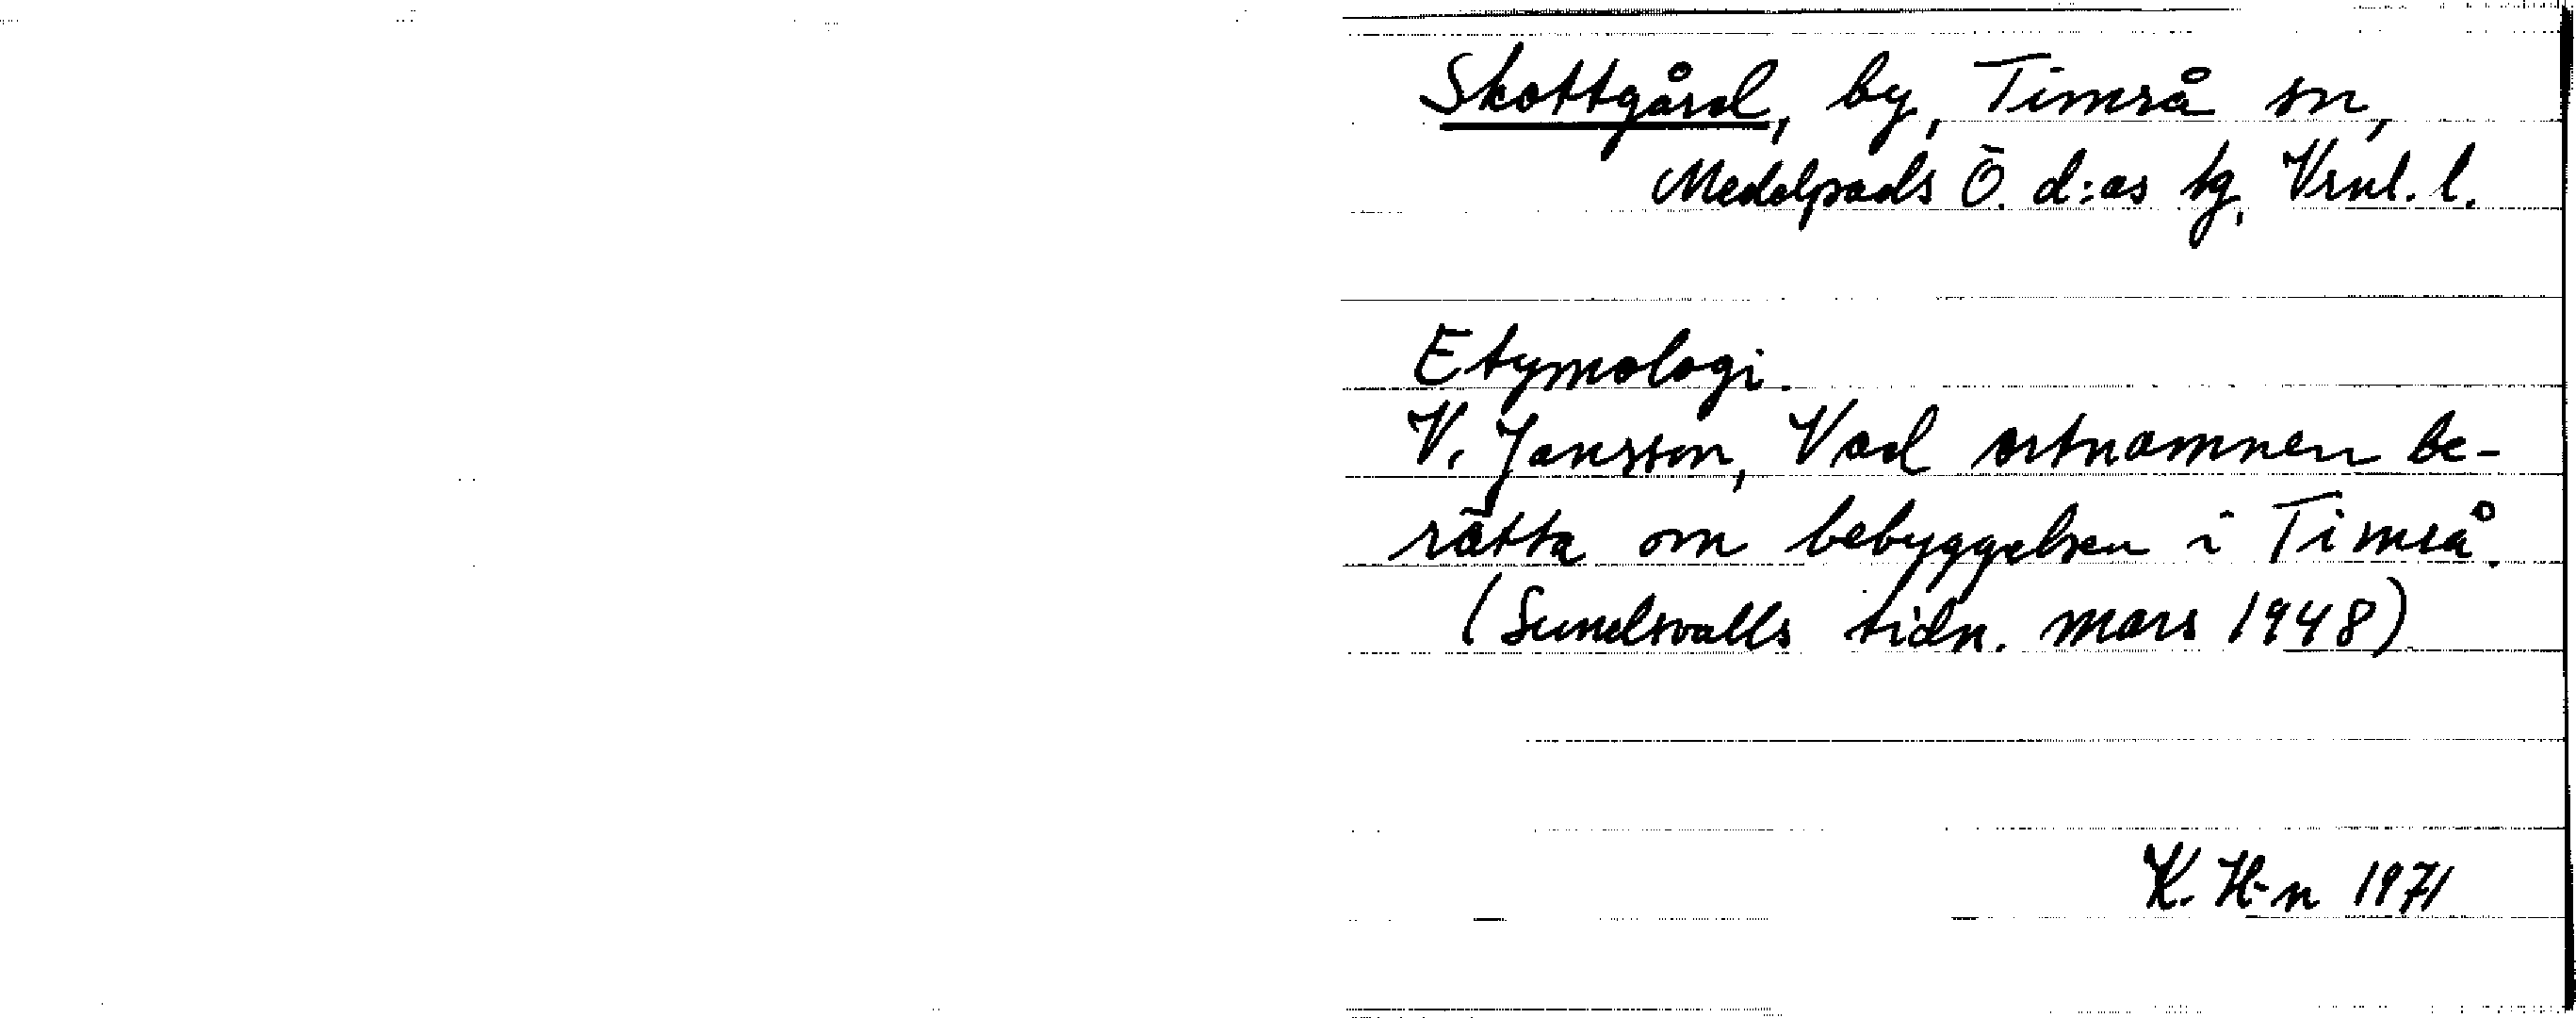 Skottgård, by, Timrå sn,
Medelpads Ö. d:as tg, Vrnl. l.
Etymologi.
V. Jansson, Vad ortnamnen be-
rätta om bebyggelsen i Timrå.
(Sundsvalls tidn. mars 1948)
K. H-n 1971